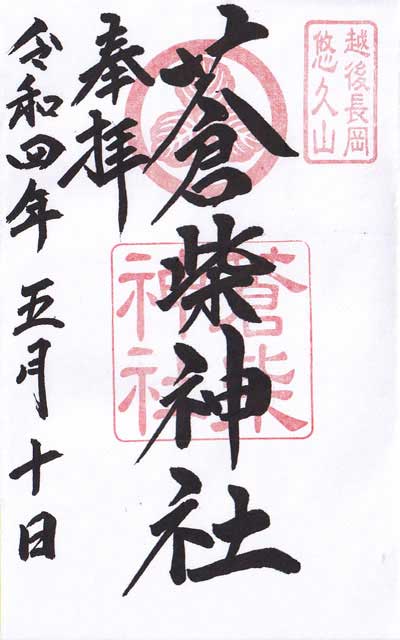 越後長岡
悠久山
蒼柴神社
蒼柴
神社
奉拝
令和四年 五月十日